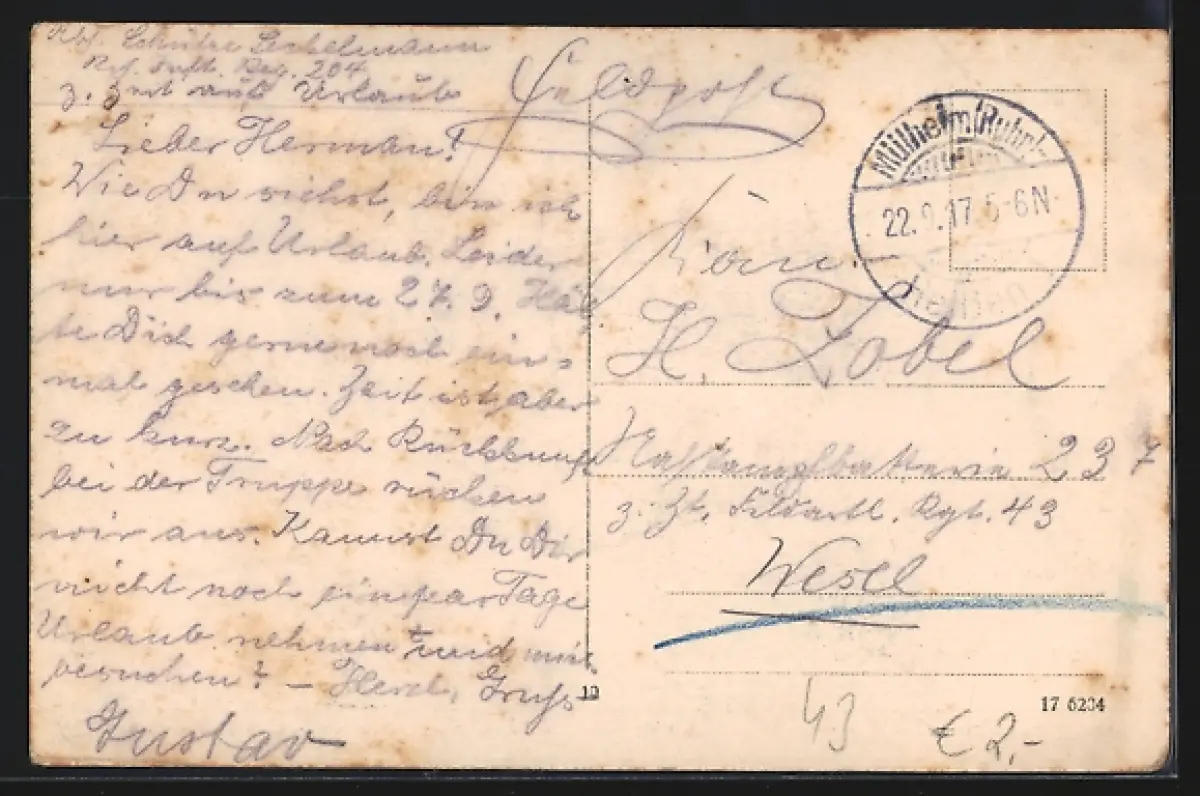 Abs. Schütze Sechelmann
Res. Inft. Reg. 204.
z. Zeit auf Urlaub
Lieber Herman!
Wie Du siehst, bin ich
hier auf Urlaub. Leider
nur bis zum 27. 9. Hät
te Dich gerne noch ein=
mal gesehen. Zeit ist aber
zu kurz. Nach Rückkunft
bei der Truppe rücken
wir aus. Kannst Du Dir
nicht noch ein paar Tage
Urlaub nehmen und mich
besuchen? – Herzl. Gruß
Gustav
Feldpost
Mülheim (Ruhr)
22.9.17 5-6N
H. Zobel
Nahkampfbatterie 237
z. Zt. Feldartl. Rgt. 43
Wesel
10
17 6204
43
€ 2,-